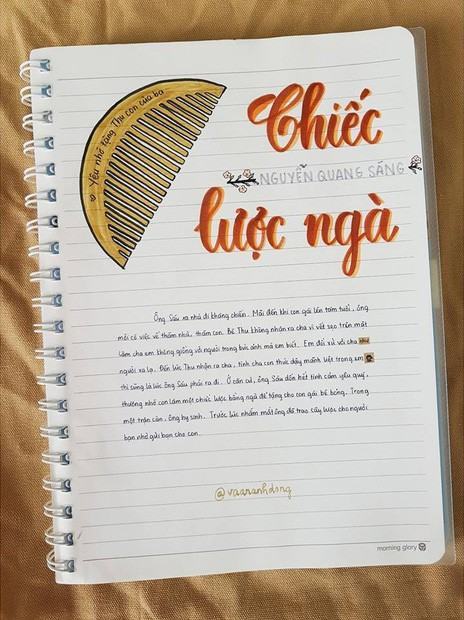 Yêu nhớ tặng Thu con của ba
Chiếc
NGUYỄN QUANG SÁNG
lược ngà
Ông Sáu xa nhà đi kháng chiến. Mãi đến khi con gái lên tám tuổi, ông
mới có việc về thăm nhà, thăm con. Bé Thu không nhận ra cha vì vết sẹo trên mặt
làm cha em không giống với người trong bức ảnh mà em biết. Em đối xử với cha như
người xa lạ. Đến lúc Thu nhận ra cha, tình cha con thức dậy mãnh liệt trong em
thì cũng là lúc ông Sáu phải ra đi. Ở căn cứ, ông Sáu dồn hết tình cảm yêu quý,
thương nhớ con làm một chiếc lược bằng ngà để tặng cho con gái bé bỏng. Trong
một trận càn, ông hy sinh. Trước lúc nhắm mắt ông đã trao cây lược cho người
bạn nhờ gửi bạn cho con.
@vaaranhdong
morning glory